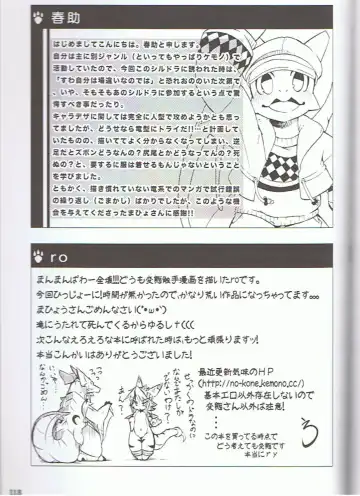 春助
はじめましてこんにちは。春助と申します。
自分は主に別ジャンル(といってもやっぱりケモノ)で
活動していたので、今回このシルドラに誘われた時は、
「すわ自分は場違いなのでは」と恐れおののいた次第で
、いや、そもそもあのシルドラに参加するという点で驚
愕すべき事だったり。
キャラデザに関しては完全に人型で攻めようかとも思っ
てましたが、どうせなら竜型にトライだ!!…と計画して
いたものの、描いててよく分からなくなってしまい、逆
足だとズボンどうなんの?尻尾とかどうなってんの?死
ぬの?と、要するに服は着せるもんじゃないということ
を学びました。
ともかく、描き慣れていない竜系でのマンガで試行錯誤
の繰り返し(ごまかし)ばかりでしたが、このような機
会を与えてくださったまひょさんに感謝!!
ro
まんまんぱわー全壊!!どうも変態触手漫画を描いたroです。
今回ひっじょーに時間が無かったので、かなり荒い作品になっちゃってます。。。
まひょうさんごめんなさい(*´ω`)
滝にうたれて死んでくるからゆるして(((
次こんなえろえろな本に呼ばれた時は、もっと頑張りますッ!
本当こんかいはありがとうございました!
最近更新気味のHP
(http://no-kone.kemono.cc/)
基本エロ以外存在しないので
変態さん以外は注意!
この本を買ってる時点で
どう考えても変態です
本当にry
ろ
118